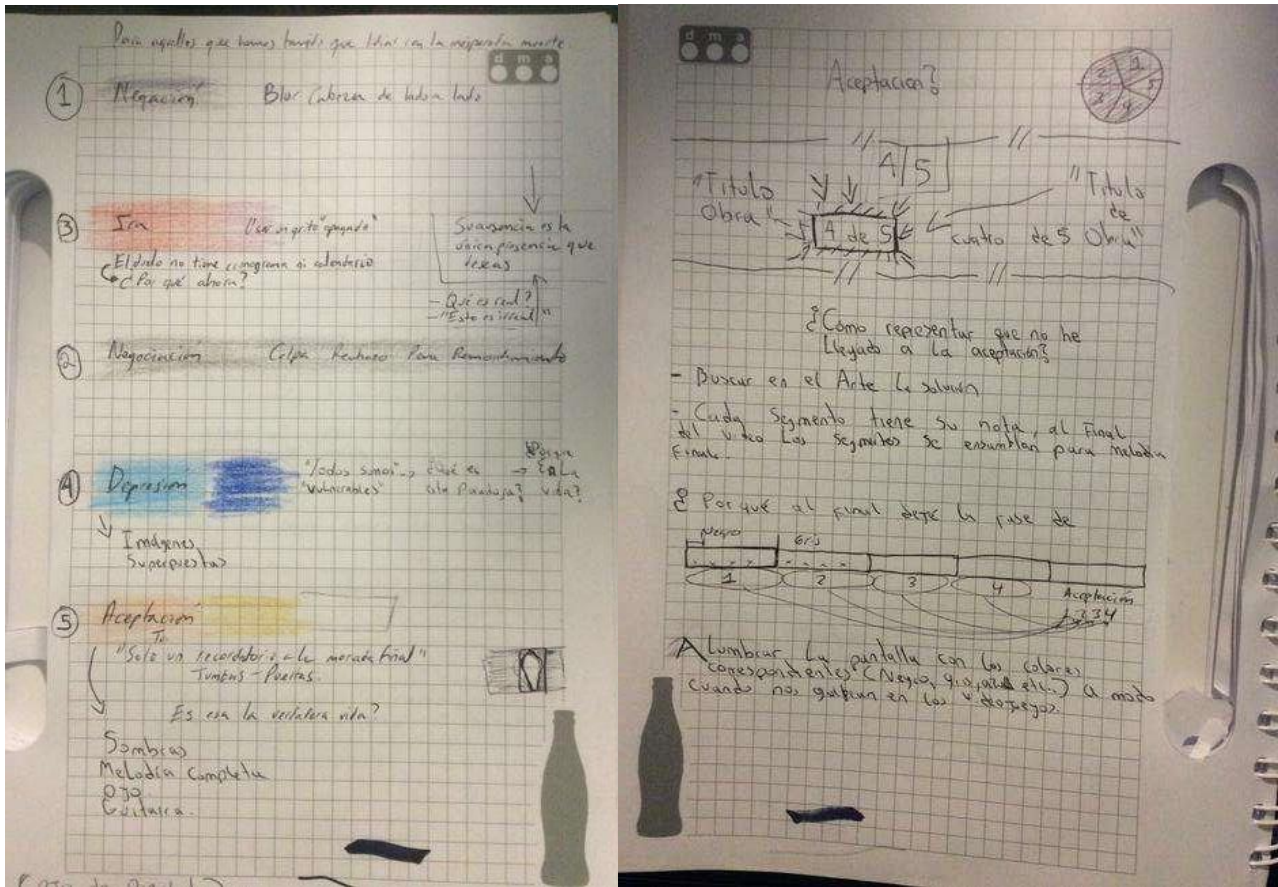 Para aquellos que hemos tenido que lidiar con la inesperada muerte
d m a
1 Negación Blur Cabeza de lado a lado
3 Ira Usar un grito "apagado"
Su ausencia es la
única presencia que
deseas
El duelo no tiene cronograma ni calendario
¿Por qué ahora?
- Qué es real?
- "Esto es irreal"
2 Negociación Culpa Rechazo Pena Remordimiento
4 Depresión "Todos somos
"Vulnerables" ¿Qué es
esta Paradoja? → La
vida?
Imágenes
Superpuestas
5 Aceptación
Tu
"Solo un recordatorio a la morada final"
Tumbas - Puertas.
Es esa la verdadera vida?
Sombras
Melodía Completa
Ojo
Guitarra.
d m a
Aceptación?
1 2 3 4 5
4/5
"Titulo
Obra"
4 de 5
cuatro de 5
"Titulo
de
Obra"
¿Cómo representar que no he
Llegado a la aceptación?
- Buscar en el Arte la solución
- Cada Segmento tiene su nota, al Final
del video Los Segmentos se ensamblan para melodía
Final.
¿Por qué al final dejé la fase de
Negro Gris
1 2 3 4 Aceptación
1 2 3 4
Alumbrar La pantalla con los colores
correspondientes (Negro, gris, azul etc..) a modo
cuando nos golpean en los videojuegos.